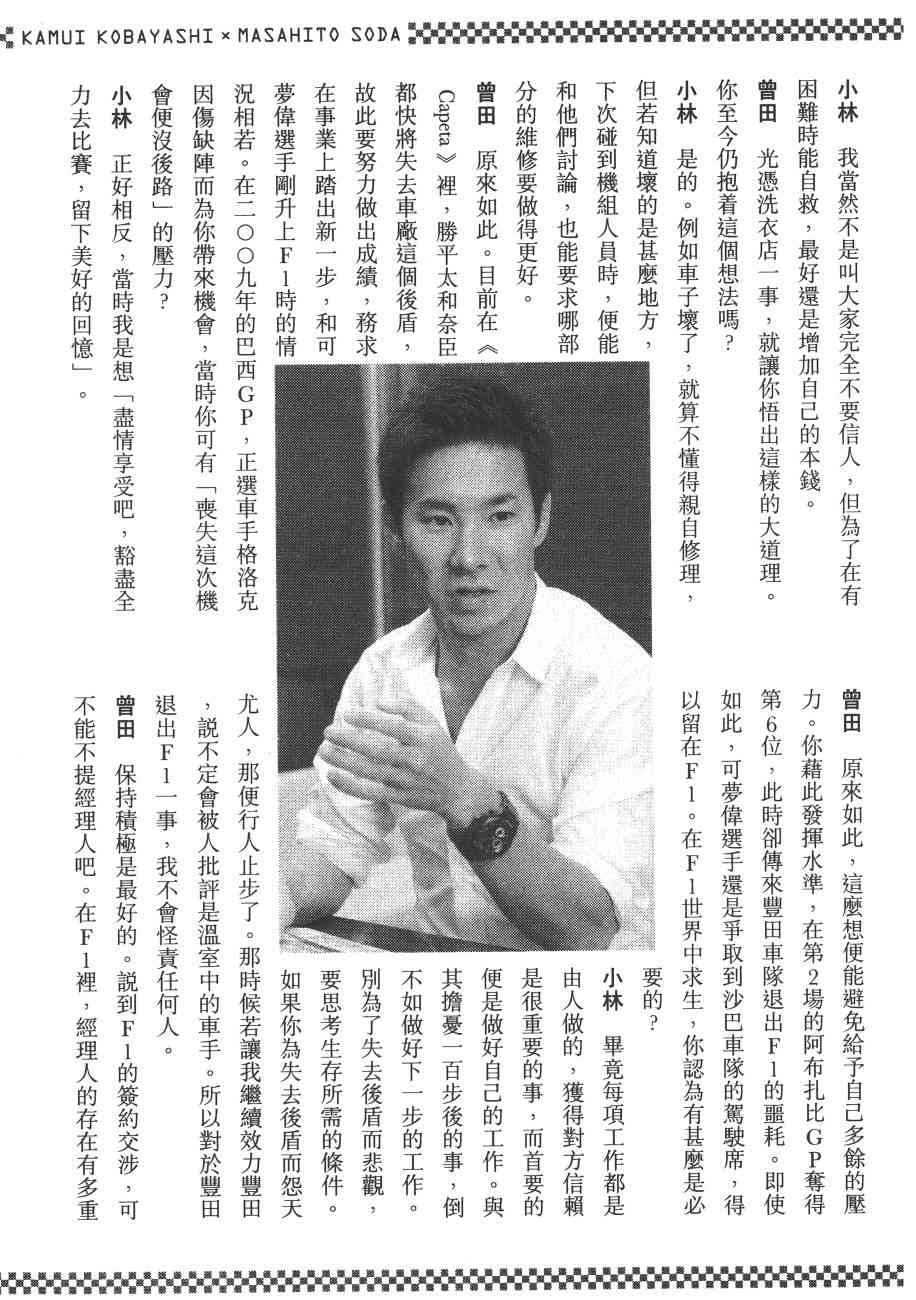 KAMUI KOBAYASHI × MASAHITO SODA
小林　我當然不是叫大家完全不要信人，但為了在有
困難時能自救，最好還是增加自己的本錢。
曾田　光憑洗衣店一事，就讓你悟出這樣的大道理。
你至今仍抱着這個想法嗎？
小林　是的。例如車子壞了，就算不懂得親自修理，
但若知道壞的是甚麼地方，
下次碰到機組人員時，便能
和他們討論，也能要求哪部
分的維修要做得更好。
曾田　原來如此。目前在《
Capeta》裡，勝平太和奈臣
都快將失去車廠這個後盾，
故此要努力做出成績，務求
在事業上踏出新一步，和可
夢偉選手剛升上F1時的情
況相若。在二〇〇九年的巴西GP，正選車手格洛克
因傷缺陣而為你帶來機會，當時你可有「喪失這次機
會便沒後路」的壓力？
小林　正好相反，當時我是想「盡情享受吧，豁盡全
力去比賽，留下美好的回憶」。
曾田　原來如此，這麼想便能避免給予自己多餘的壓
力。你藉此發揮水準，在第2場的阿布扎比GP奪得
第6位，此時卻傳來豐田車隊退出F1的噩耗。即使
如此，可夢偉選手還是爭取到沙巴車隊的駕駛席，得
以留在F1。在F1世界中求生，你認為有甚麼是必
要的？
小林　畢竟每項工作都是
由人做的，獲得對方信賴
是很重要的事，而首要的
便是做好自己的工作。與
其擔憂一百步後的事，倒
不如做好下一步的工作。
別為了失去後盾而悲觀，
要思考生存所需的條件。
如果你為失去後盾而怨天
尤人，那便行人止步了。那時候若讓我繼續效力豐田
，說不定會被人批評是溫室中的車手。所以對於豐田
退出F1一事，我不會怪責任何人。
曾田　保持積極是最好的。說到F1的簽約交涉，可
不能不提經理人吧。在F1裡，經理人的存在有多重